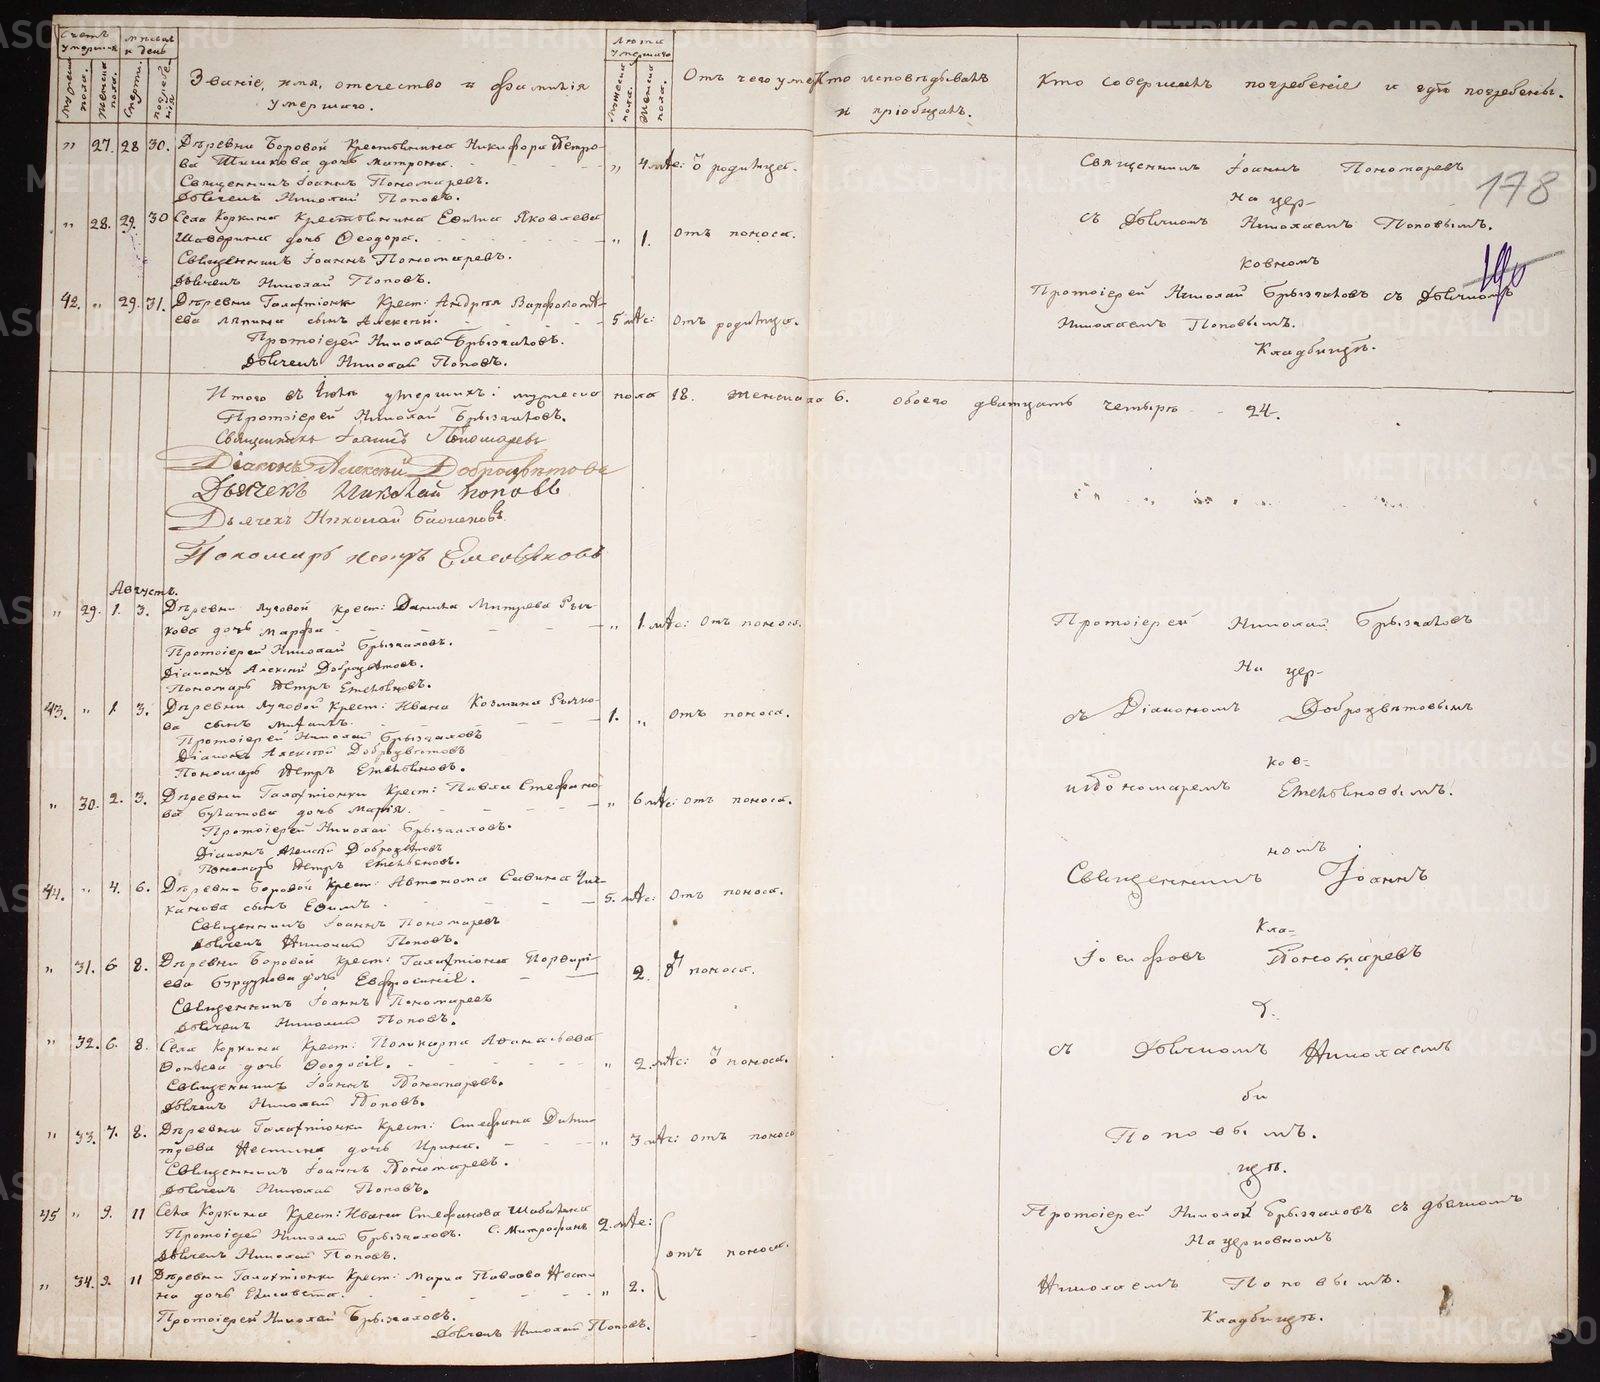 Счетъ умершихъ
мѣсяцъ и день
Звание, имя, отечество и фамилія умершаго.
Лѣта умершаго
Отъ чего умеръ
Кто исповѣдывалъ и пріобщалъ.
Кто совершалъ погребеніе и гдѣ погребены.
мужеска пола.
женска пола.
смерти.
погребенія
мужеска пола.
женска пола.
„ 27. 28 30. Деревни Боровой Крестьянина Никифора Петро-
ва Тишкова дочь Матрона. „ 4 мѣс: ѿ родимца.
Священникъ Іоаннъ Пономаревъ.
Дьячекъ Николай Поповъ.
Священникъ Іоаннъ Пономаревъ
178
На цер-
„ 28. 29. 30 Села Коркина Крестьянина Ефима Яковлева
дочь Ѳеодора. „ 1. отъ поноса.
Священникъ Іоаннъ Пономаревъ.
Дьячекъ Николай Поповъ.
съ Дьячкомъ Николаемъ Поповымъ.
ковномъ
42. „ 29. 31. Деревни Галактіонки Крест: Андрея Варфоломѣ-
ева сынъ Алексѣй. 5 мѣс: отъ родимца.
Протоіерей Николай Брызгаловъ.
Дьячекъ Николай Поповъ.
Протоіерей Николай Брызгаловъ съ Дьячкомъ
Николаемъ Поповымъ.
Кладбищѣ.
Итого въ Іюлѣ умершихъ: мужеска пола 18. женска 6. обоего дватцать четыре - 24.
Протоіерей Николай Брызгаловъ.
Священникъ Іоаннъ Пономаревъ
Діаконъ Алексѣй Доброцвѣтовъ
Дьячекъ Николай Поповъ
Дьячекъ Николай
Пономарь Петръ Емельяновъ
Августъ.
„ 29. 1. 3. Деревни Луговой крест: Данила Митрева Рыч-
кова дочь Марфа. „ 1 мѣс: отъ поноса.
Протоіерей Николай Брызгаловъ.
Діаконъ Алексѣй Доброцвѣтовъ.
Пономарь Петръ Емельяновъ.
Протоіерей Николай Брызгаловъ
На цер-
43. „ 1. 3. Деревни Луговой Крест: Ивана Козмина Рычко-
ва сынъ Михаилъ. 1. „ отъ поноса.
Протоіерей Николай Брызгаловъ
Діаконъ Алексѣй Доброцвѣтовъ
Пономарь Петръ Емельяновъ.
съ Діакономъ Доброцвѣтовымъ
ков-
„ 30. 2. 3. Деревни Галактіонки Крест: Павла Стефано-
ва Булатова дочь Марія. „ 6 мѣс: отъ поноса.
Протоіерей Николай Брызгаловъ.
Діаконъ Алексѣй Доброцвѣтовъ
Пономарь Петръ Емельяновъ.
и Пономаремъ Емельяновымъ.
номъ
44. „ 4. 6. Деревни Боровой Крест: Автонома Савина
сынъ Ефимъ. 5. мѣс: отъ поноса.
Священникъ Іоаннъ Пономаревъ
Дьячекъ Николай Поповъ.
Священникъ Іоаннъ
Кла-
„ 31. 6 8. Деревни Боровой Крест: Галактіона Порфирі-
ева дочь Евфросинія. 2. ѿ поноса.
Священникъ Іоаннъ Пономаревъ
Дьячекъ Николай Поповъ.
Іосифовъ Пономаревъ
д-
„ 32. 6. 8. Села Коркина Крест: Поликарпа Аѳанасьева
дочь Ѳеодосія. „ 2. мѣс: ѿ поноса.
Священникъ Іоаннъ Пономаревъ.
Дьячекъ Николай Поповъ.
съ Дьячкомъ Николаемъ
би
„ 33. 7. 8. Деревни Галактіонки Крест: Стефана Дими-
трева дочь Ирина. „ 3 мѣс: отъ поноса
Священникъ Іоаннъ Пономаревъ.
Дьячекъ Николай Поповъ.
Поповымъ.
щѣ.
45 „ 9. 11 Села Коркина Крест: Ивана Стефанова Шабалина
Протоіерей Николай Брызгаловъ. с. Митрофанъ 2. мѣс:
Дьячекъ Николай Поповъ.
отъ поноса.
Протоіерей Николай Брызгаловъ съ дьячкомъ
На церковномъ
„ 34. 9. 11 Деревни Галактіонки Крест: Марка Павлова
дочь Елисавета. „ 2.
Протоіерей Николай Брызгаловъ.
Дьячекъ Николай Поповъ.
Николаемъ Поповымъ.
Кладбищѣ.
METRIKI.GASO-URAL.RU